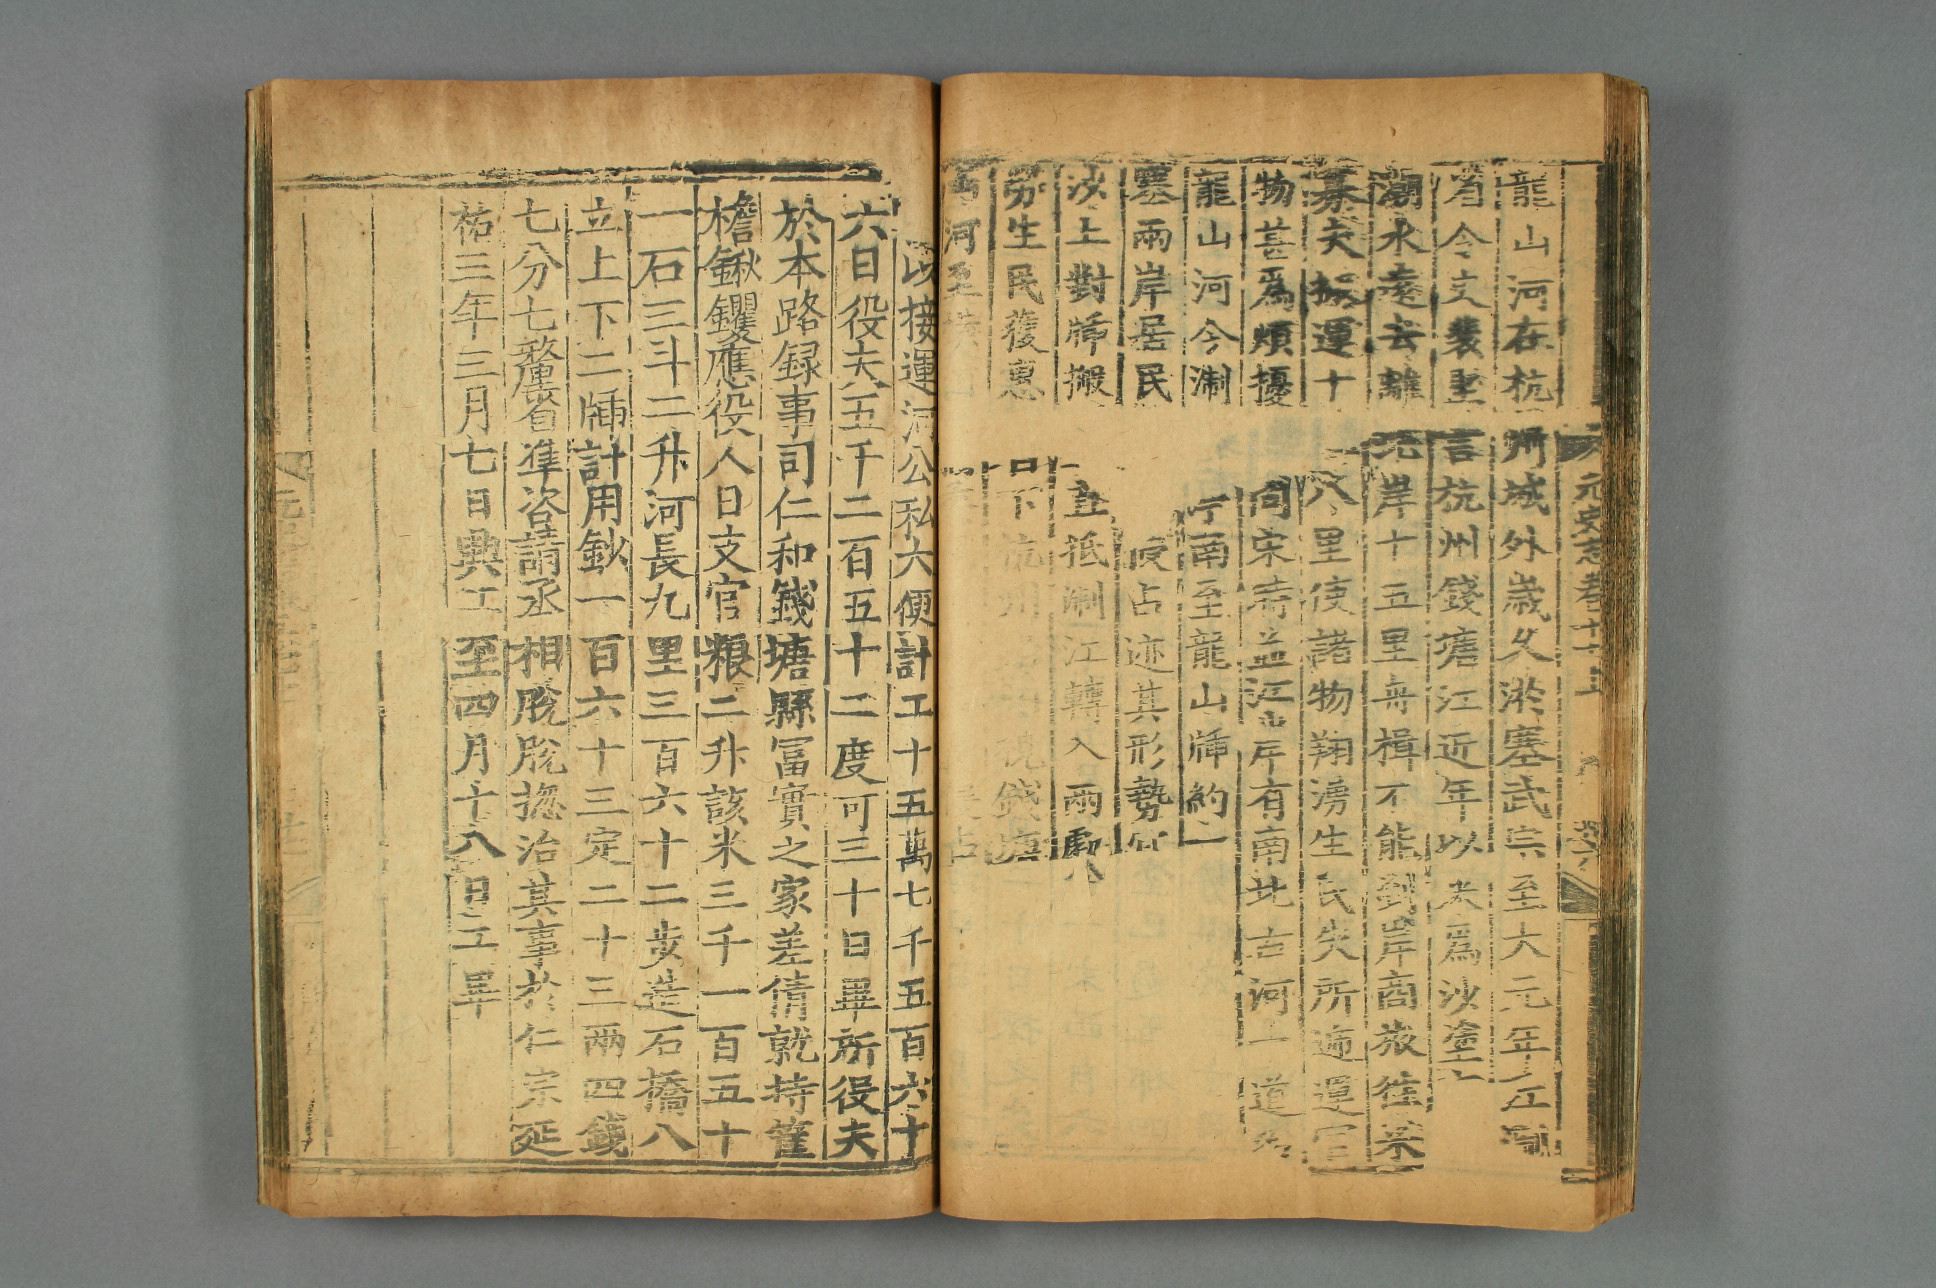 元史志卷十
龍山河在杭州城外歲久淤塞武宗至大元年江浙
省令史裴堅言杭州錢塘江近年以來爲沙塗
潮水遠去離北岸十五里舟楫不能到岸商旅往來
募夫搬運十八里使諸物翔湧生民失所遞運官
物甚爲煩擾問宋時並江岸有南北古河一道名
龍山河今浙亭南至龍山牐約一
塞兩岸居民侵占迹其形勢宜
沙上對牐搬直抵浙江轉入兩處
勞生民獲惠下杭州錢塘
河至
以接運河公私大便計工十五萬七千五百六十
六日役夫五千二百五十二度可三十日畢所役夫
於本路録事司仁和錢塘縣冨實之家差倩就持筐
檐鍬钁應役人日支官粮二升該米三千一百五十
一石三斗二升河長九里三百六十二步造石橋八
立上下二牐計用鈔一百六十三定二十三兩四錢
七分七釐省準咨請丞相脫脫摠治其事於仁宗延
祐三年三月七日興工至四月十八日工畢